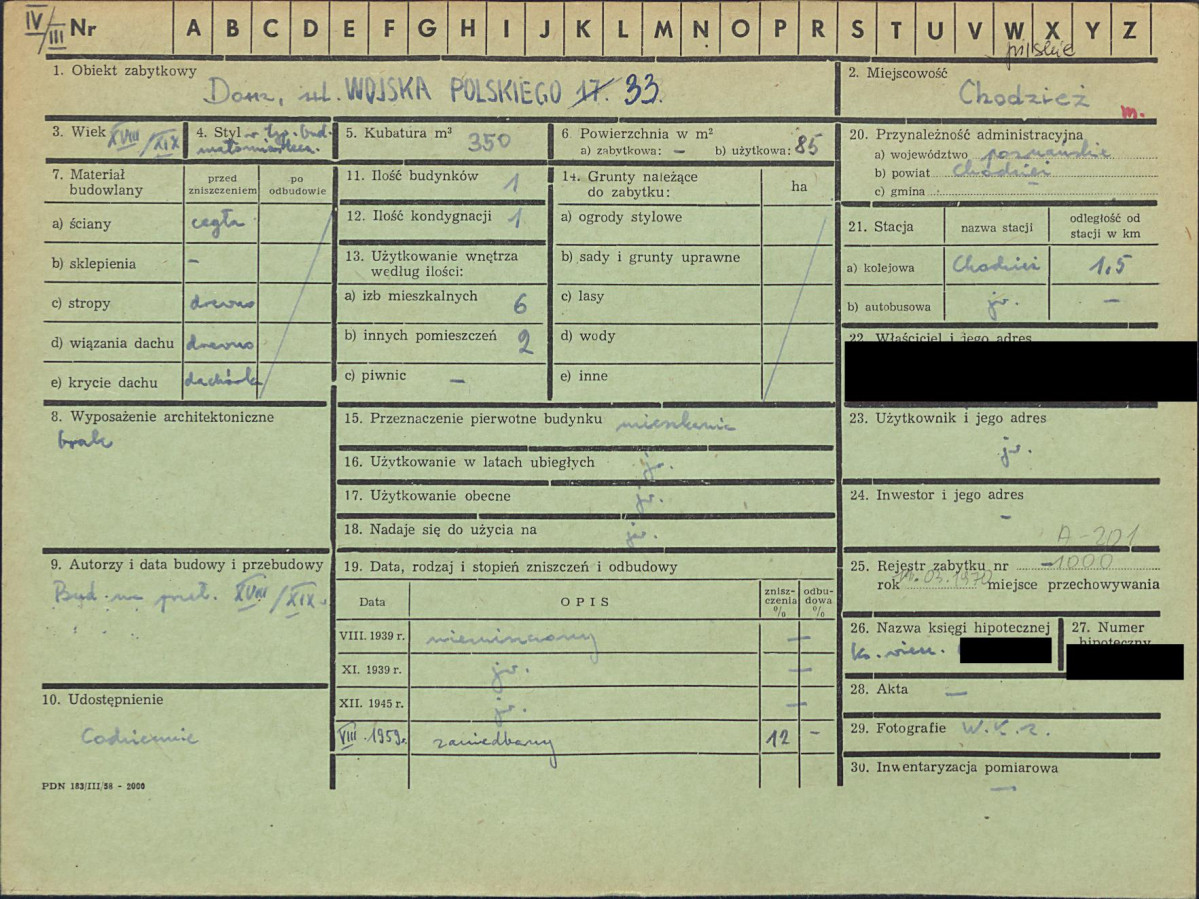 IV/III Nr A B C D E F G H I J K L M N O P R S T U V W X Y Z
pilskie
1. Obiekt zabytkowy
Dom, ul. WOJSKA POLSKIEGO 17. 33.
2. Miejscowość
Chodzież
m.
3. Wiek XVIII/XIX
4. Styl w typ. bud. małomiasteczk.
5. Kubatura m³ 350
6 Powierzchnia w m²
a) zabytkowa: — b) użytkowa: 85
7. Materiał budowlany
przed zniszczeniem
po odbudowie
a) ściany cegła
b) sklepienia –
c) stropy drewno
d) wiązania dachu drewno
e) krycie dachu dachówka
8. Wyposażenie architektoniczne
brak
9. Autorzy i data budowy i przebudowy
Bud. na przeł. XVIII/XIX w.
10. Udostępnienie
Codziennie
PDN 183/III/58 - 2000
11. Ilość budynków 1
12. Ilość kondygnacji 1
13. Użytkowanie wnętrza
według ilości:
a) izb mieszkalnych 6
b) innych pomieszczeń 2
c) piwnic —
14. Grunty należące
do zabytku:
ha
a) ogrody stylowe
b) sady i grunty uprawne
c) lasy
d) wody
e) inne
15. Przeznaczenie pierwotne budynku mieszkanie
16. Użytkowanie w latach ubiegłych jw.
17. Użytkowanie obecne jw.
18. Nadaje się do użycia na jw.
19. Data, rodzaj i stopień zniszczeń i odbudowy
Data
OPIS
znisz-
czenia
%
odbu-
dowa
%
VIII. 1939 r. niezniszczony —
XI. 1939 r. jw. —
XII. 1945 r. jw. —
VIII. 1959r. zaniedbany 12 –
20. Przynależność administracyjna
a) województwo poznańskie
b) powiat Chodzież
c) gmina –
21. Stacja
nazwa stacji
odległość od
stacji w km
a) kolejowa Chodzież 1,5
b) autobusowa jw. —
22. Właściciel i jego adres
23. Użytkownik i jego adres
jw.
24. Inwestor i jego adres
—
A-201
25. Rejestr zabytku nr 1000
rok 03.1970 miejsce przechowywania
26. Nazwa księgi hipotecznej
ks. wiecz.
27. Numer
hipoteczny
28. Akta —
29. Fotografie W.K.Z.
30. Inwentaryzacja pomiarowa
—